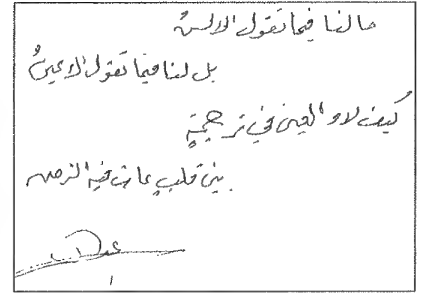 ما لنا فيما تقول الألسنُ
بل لنا فيما تقول الأعينُ
كيف لا و العين في ترجمةٍ
بين قلبٍ عاث فيه الزمن